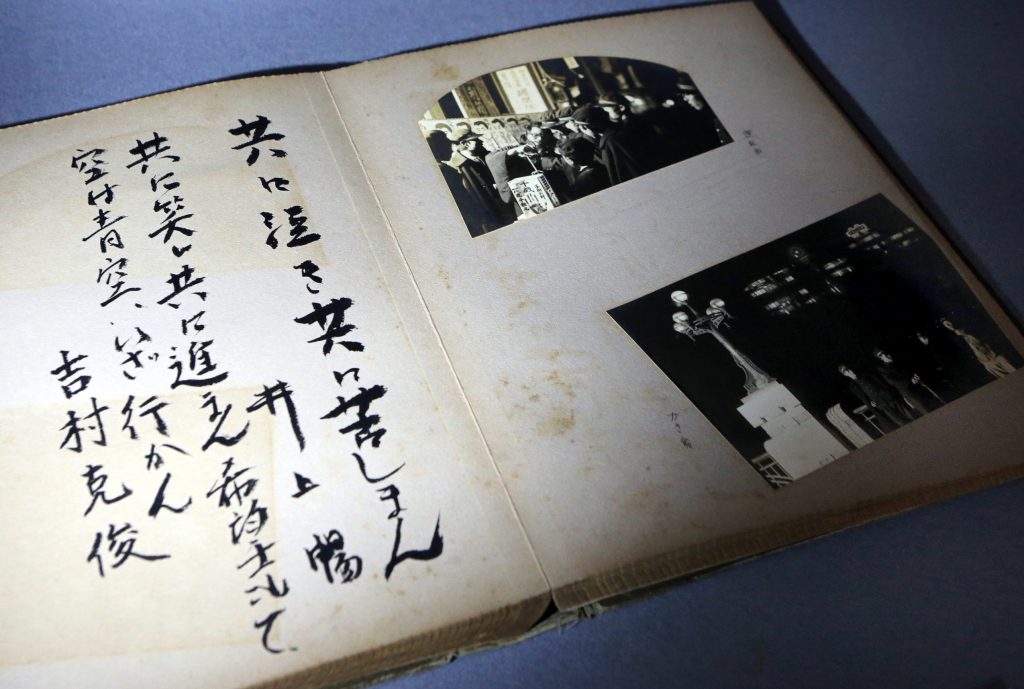 共に泣き共に苦しまん
井上暢
共に笑い共に進まん希望
空は青空、いざ行かん
吉村克俊